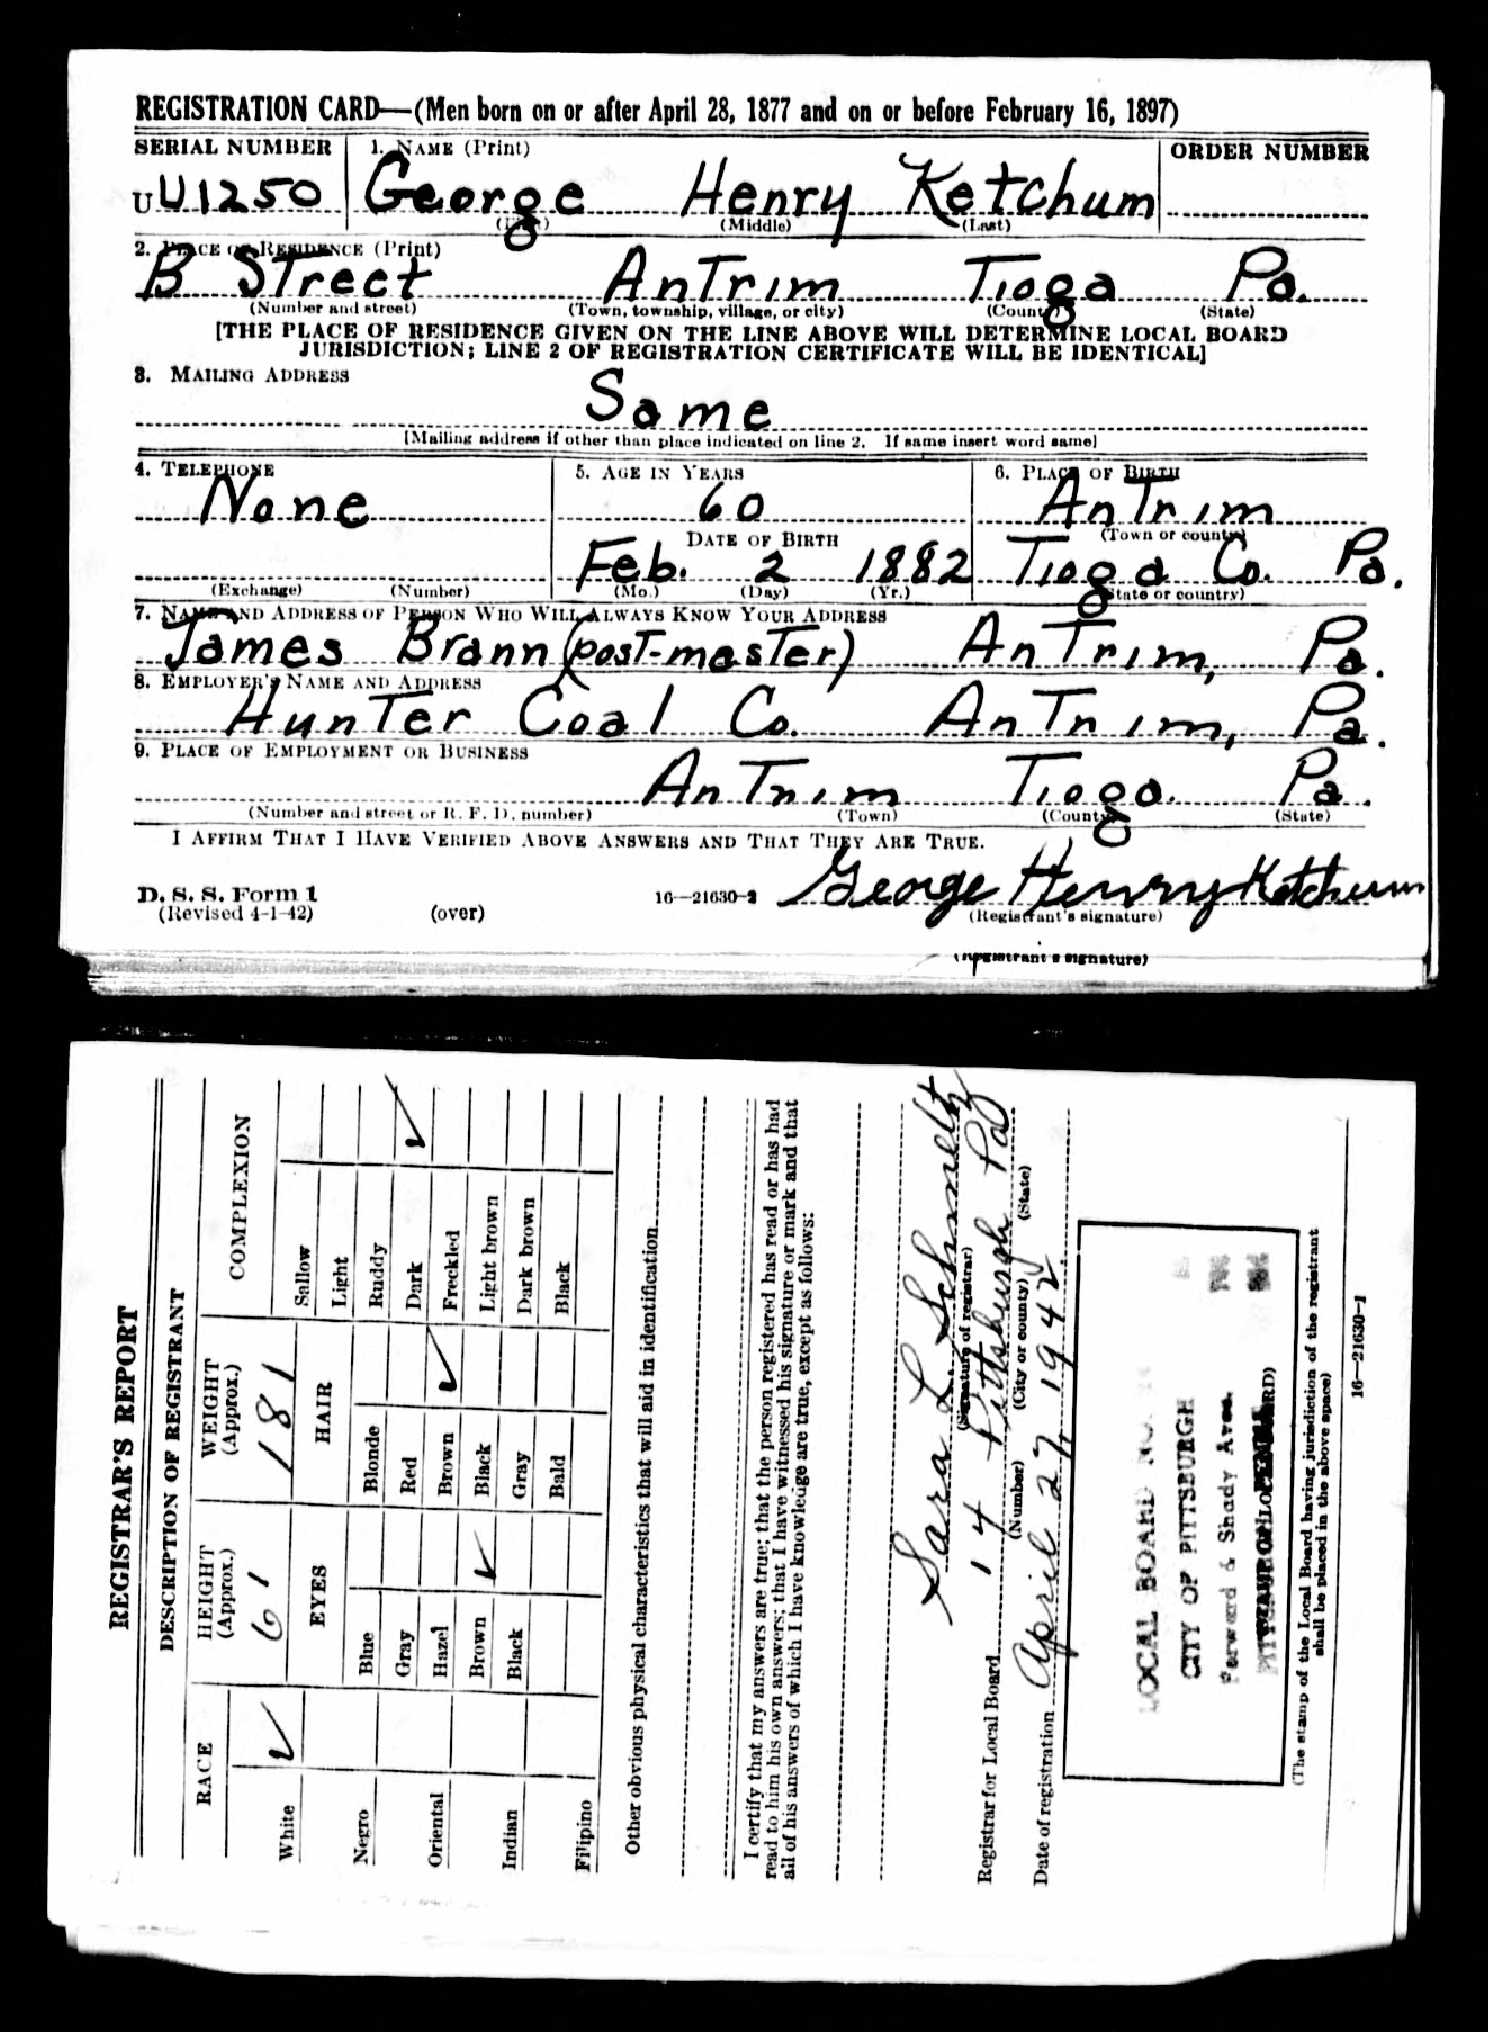 REGISTRATION CARD—(Men born on or after April 28, 1877 and on or before February 16, 1897)
SERIAL NUMBER 1. NAME (Print) ORDER NUMBER
U U1250 George Henry Ketchum
(Middle) (Last)
2. PLACE OF RESIDENCE (Print)
B Street Antrim Tioga Pa.
(Number and street) (Town, township, village, or city) (County) (State)
[THE PLACE OF RESIDENCE GIVEN ON THE LINE ABOVE WILL DETERMINE LOCAL BOARD
JURISDICTION; LINE 2 OF REGISTRATION CERTIFICATE WILL BE IDENTICAL]
3. MAILING ADDRESS
Same
[Mailing address if other than place indicated on line 2. If same insert word same]
4. TELEPHONE 5. AGE IN YEARS 6. PLACE OF BIRTH
None 60 Antrim
DATE OF BIRTH (Town or county)
Feb. 2 1882 Tioga Co. Pa.
(Exchange) (Number) (Mo.) (Day) (Yr.) (State or country)
7. NAME AND ADDRESS OF PERSON WHO WILL ALWAYS KNOW YOUR ADDRESS
James Brann (post-master) Antrim, Pa.
8. EMPLOYER'S NAME AND ADDRESS
Hunter Coal Co. Antrim, Pa.
9. PLACE OF EMPLOYMENT OR BUSINESS
Antrim Tioga. Pa.
(Number and street or R. F. D. number) (Town) (County) (State)
I AFFIRM THAT I HAVE VERIFIED ABOVE ANSWERS AND THAT THEY ARE TRUE.
George Henry Ketchum
D. S. S. Form 1
(Revised 4-1-42) (over) 16—21630-2 (Registrant's signature)
(Registrant's signature)
REGISTRAR'S REPORT
DESCRIPTION OF REGISTRANT
RACE HEIGHT (Approx.) WEIGHT (Approx.) COMPLEXION
61 181
White EYES HAIR Sallow
Light
Negro Blue Blonde Ruddy
Gray Red Dark
Oriental Hazel Brown Freckled
Brown Black Light brown
Indian Black Gray Dark brown
Bald Black
Filipino
Other obvious physical characteristics that will aid in identification
I certify that my answers are true; that the person registered has read or has had
read to him his own answers; that I have witnessed his signature or mark and that
all of his answers of which I have knowledge are true, except as follows:
Sara L Schmeltz
(Signature of registrar)
Registrar for Local Board 14 Pittsburgh Pa
(Number) (City or county) (State)
Date of registration April 27, 1942
LOCAL BOARD NO.
CITY OF PITTSBURGH
Forward & Shady Aves.
(The stamp of the Local Board having jurisdiction of the registrant
shall be placed in the above space)
16—21630-1